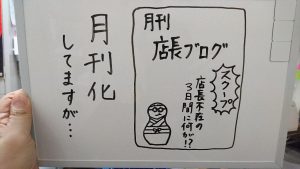 月刊化
してますが…
月刊
店長ブログ
スクープ
店長不在の
3日間に何が!?